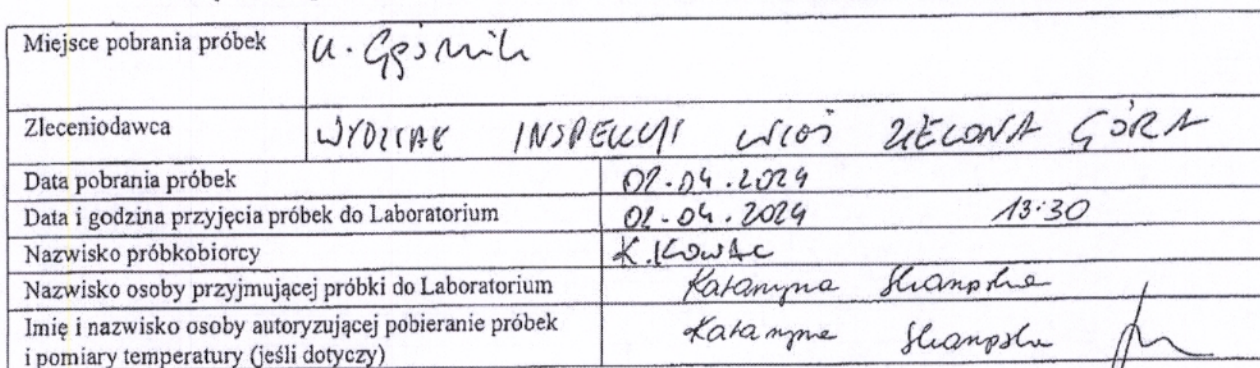 Miejsce pobrania próbek
Zleceniodawca WYDZIAŁ INSPEKCJI WIOŚ ZIELONA GÓRA
Data pobrania próbek 02.04.2024
Data i godzina przyjęcia próbek do Laboratorium 02.04.2024 13:30
Nazwisko próbkobiorcy K. Kowal
Nazwisko osoby przyjmującej próbki do Laboratorium Katarzyna
Imię i nazwisko osoby autoryzującej pobieranie próbek Katarzyna
i pomiary temperatury (jeśli dotyczy)